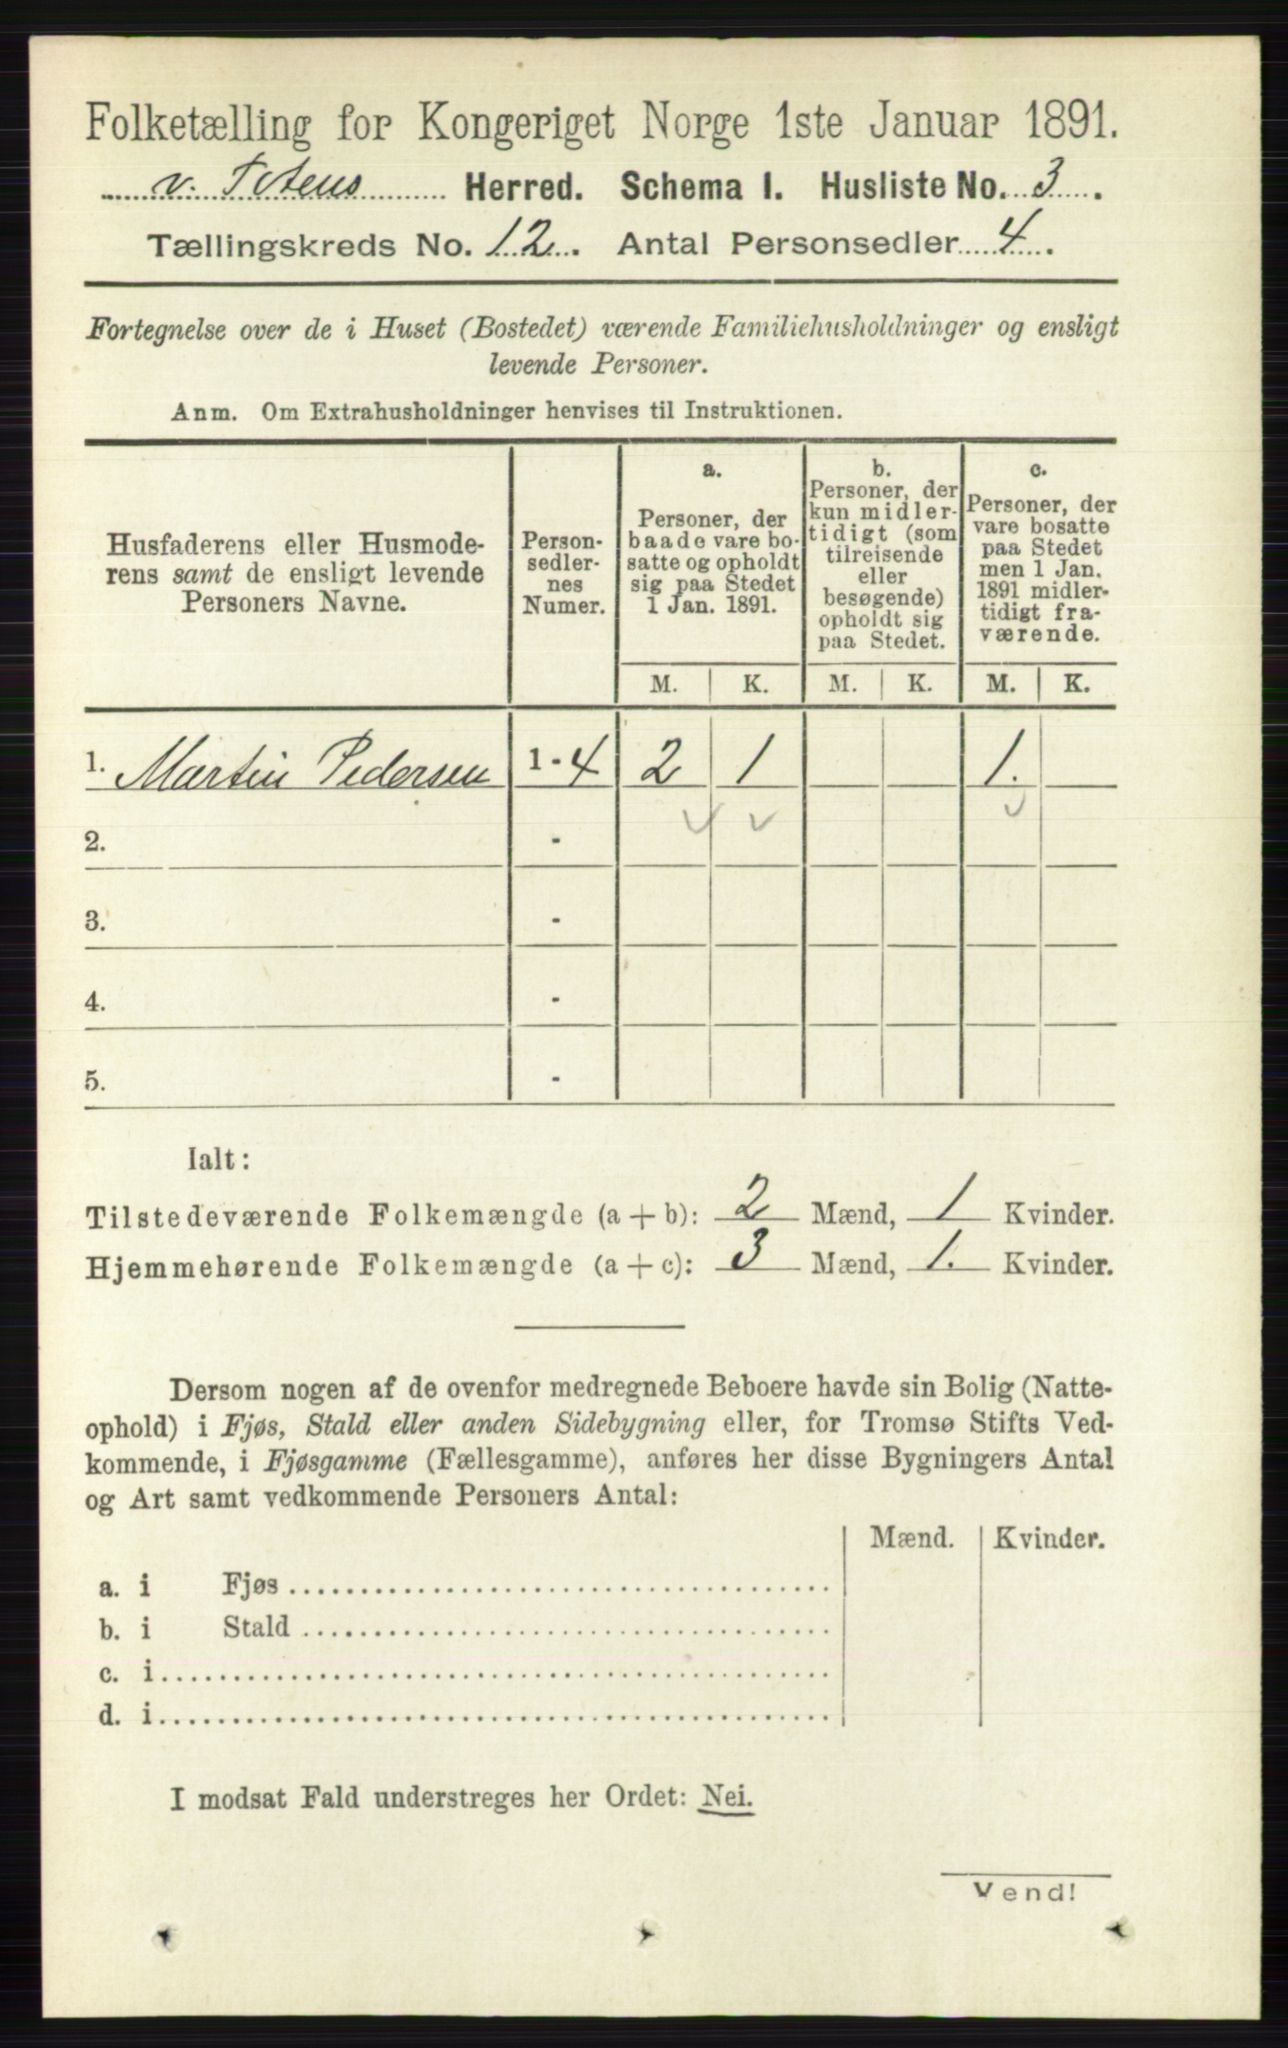 Folketælling for Kongeriget Norge 1ste Januar 1891.
v. Totens Herred. Schema I. Husliste No. 3.
Tællingskreds No. 12. Antal Personsedler 4.
Fortegnelse over de i Huset (Bostedet) værende Familiehusholdninger og ensligt
levende Personer.
Anm. Om Extrahusholdninger henvises til Instruktionen.
Husfaderens eller Husmode-
rens samt de ensligt levende
Personers Navne.
Person-
sedler-
nes
Numer.
a.
Personer, der
baade vare bo-
satte og opholdt
sig paa Stedet
1 Jan. 1891.
b.
Personer, der
kun midler-
tidigt (som
tilreisende
eller
besøgende)
opholdt sig
paa Stedet.
c.
Personer, der
vare bosatte
paa Stedet
men 1 Jan.
1891 midler-
tidigt fra-
værende.
M. K. M. K. M. K.
1. Martin Pedersen 1 - 4 2 1 1.
2. -
3. -
4. -
5. -
Ialt:
Tilstedeværende Folkemængde (a + b): 2 Mænd, 1 Kvinder.
Hjemmehørende Folkemængde (a + c): 3 Mænd, 1. Kvinder.
Dersom nogen af de ovenfor medregnede Beboere havde sin Bolig (Natte-
ophold) i Fjøs, Stald eller anden Sidebygning eller, for Tromsø Stifts Ved-
kommende, i Fjøsgamme (Fællesgamme), anføres her disse Bygningers Antal
og Art samt vedkommende Personers Antal:
Mænd. Kvinder.
a. i Fjøs
b. i Stald
c. i
d. i
I modsat Fald understreges her Ordet: Nei.
Vend!